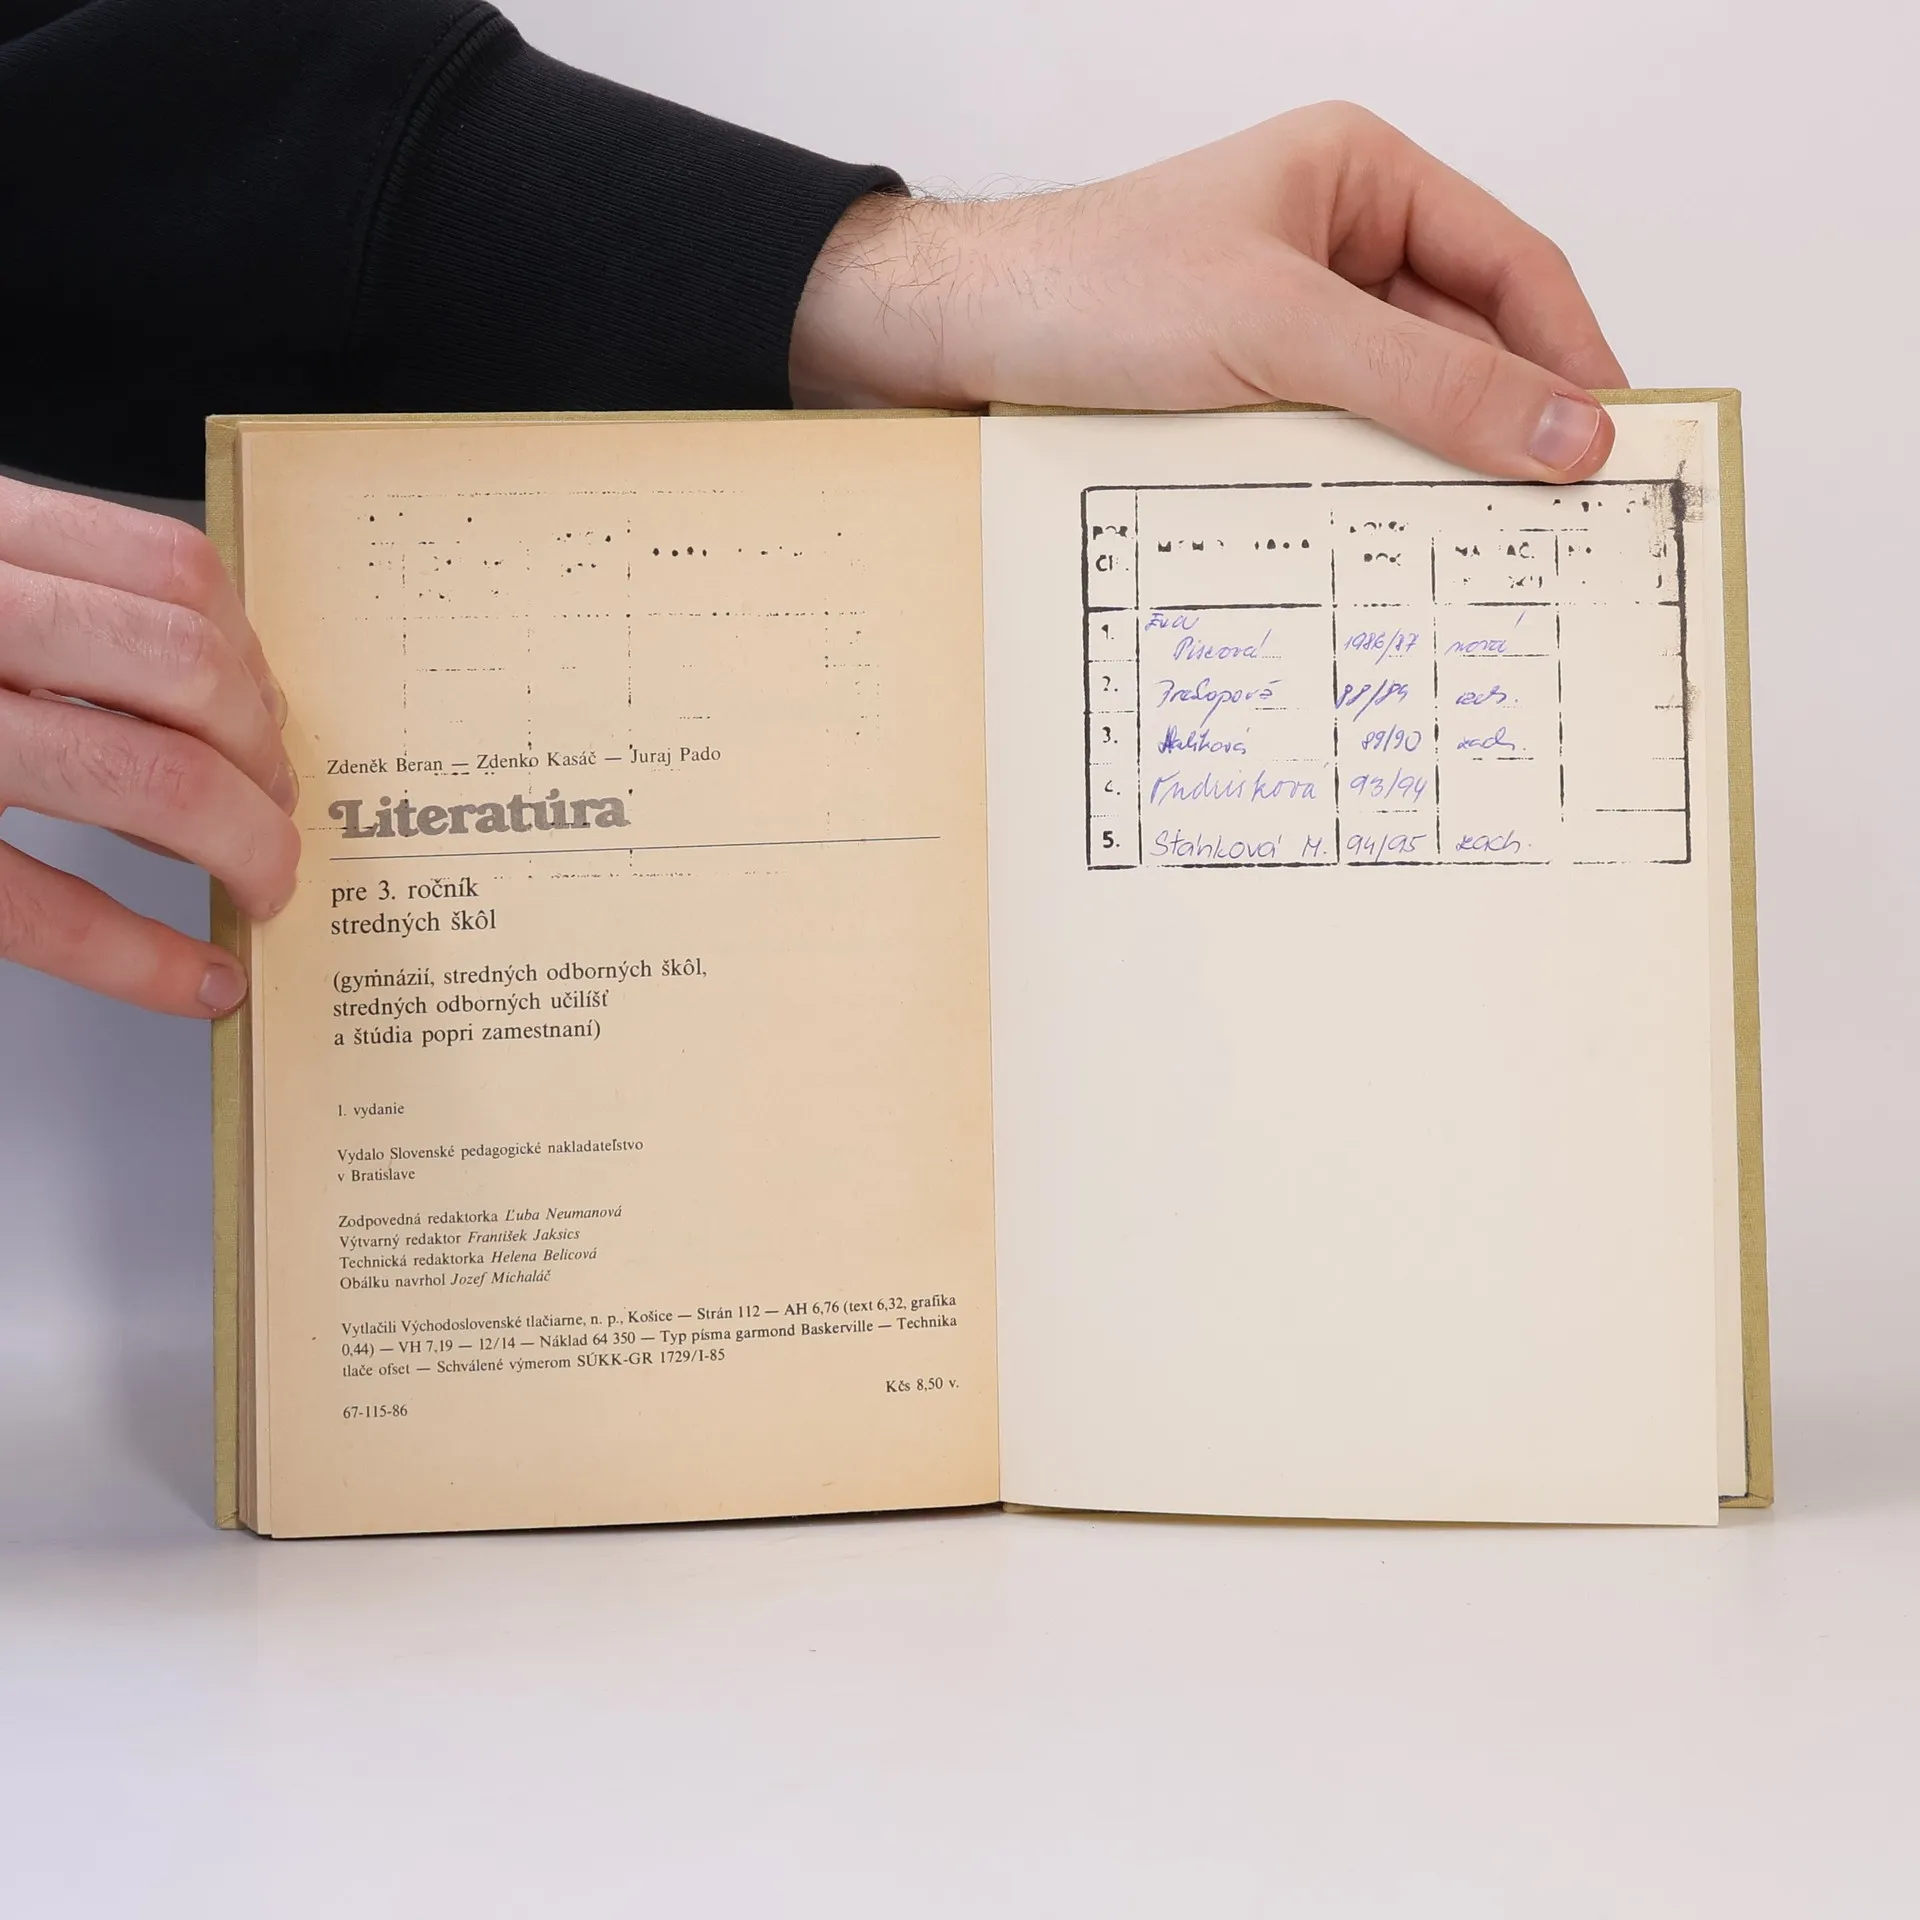 Zdeněk Beran — Zdenko Kasáč — Juraj Pado
Literatúra
pre 3. ročník
stredných škôl
(gymnázií, stredných odborných škôl,
stredných odborných učilíšť
a štúdia popri zamestnaní)
1. vydanie
Vydalo Slovenské pedagogické nakladateľstvo
v Bratislave
Zodpovedná redaktorka Ľuba Neumanová
Výtvarný redaktor František Jaksics
Technická redaktorka Helena Belicová
Obálku navrhol Jozef Michaláč
Vytlačili Východoslovenské tlačiarne, n. p., Košice — Strán 112 — AH 6,76 (text 6,32, grafika
0,44) — VH 7,19 — 12/14 — Náklad 64 350 — Typ písma garmond Baskerville — Technika
tlače ofset — Schválené výmerom SÚKK-GR 1729/I-85
Kčs 8,50 v.
67-115-86
POR.
ROK
1. Eva
1986/87 nová
2. 88/89 zach.
3. 89/90 zach.
93/94
5. Stanková M. 94/95 zach.